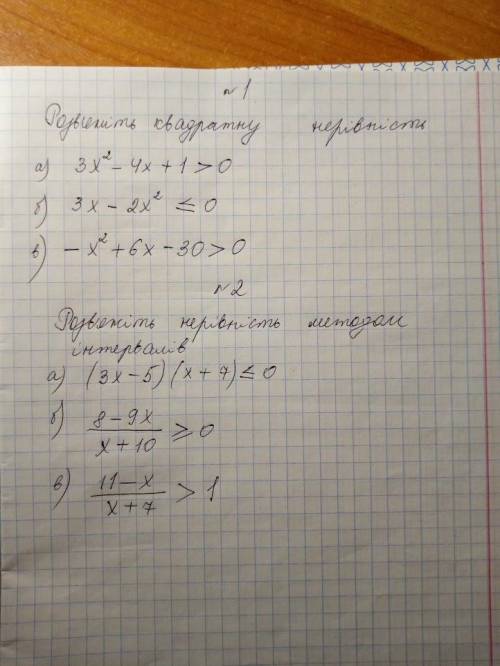 №1
Розв'яжіть квадратну нерівність
а) 3x² - 4x + 1 > 0
б) 3x - 2x² ≤ 0
в) - x² + 6x - 30 > 0
№2
Розв'яжіть нерівність методом
інтервалів
а) (3x - 5)(x + 7) ≤ 0
б) (8 - 9x)/(x + 10) ≥ 0
в) (11 - x)/(x + 7) > 1